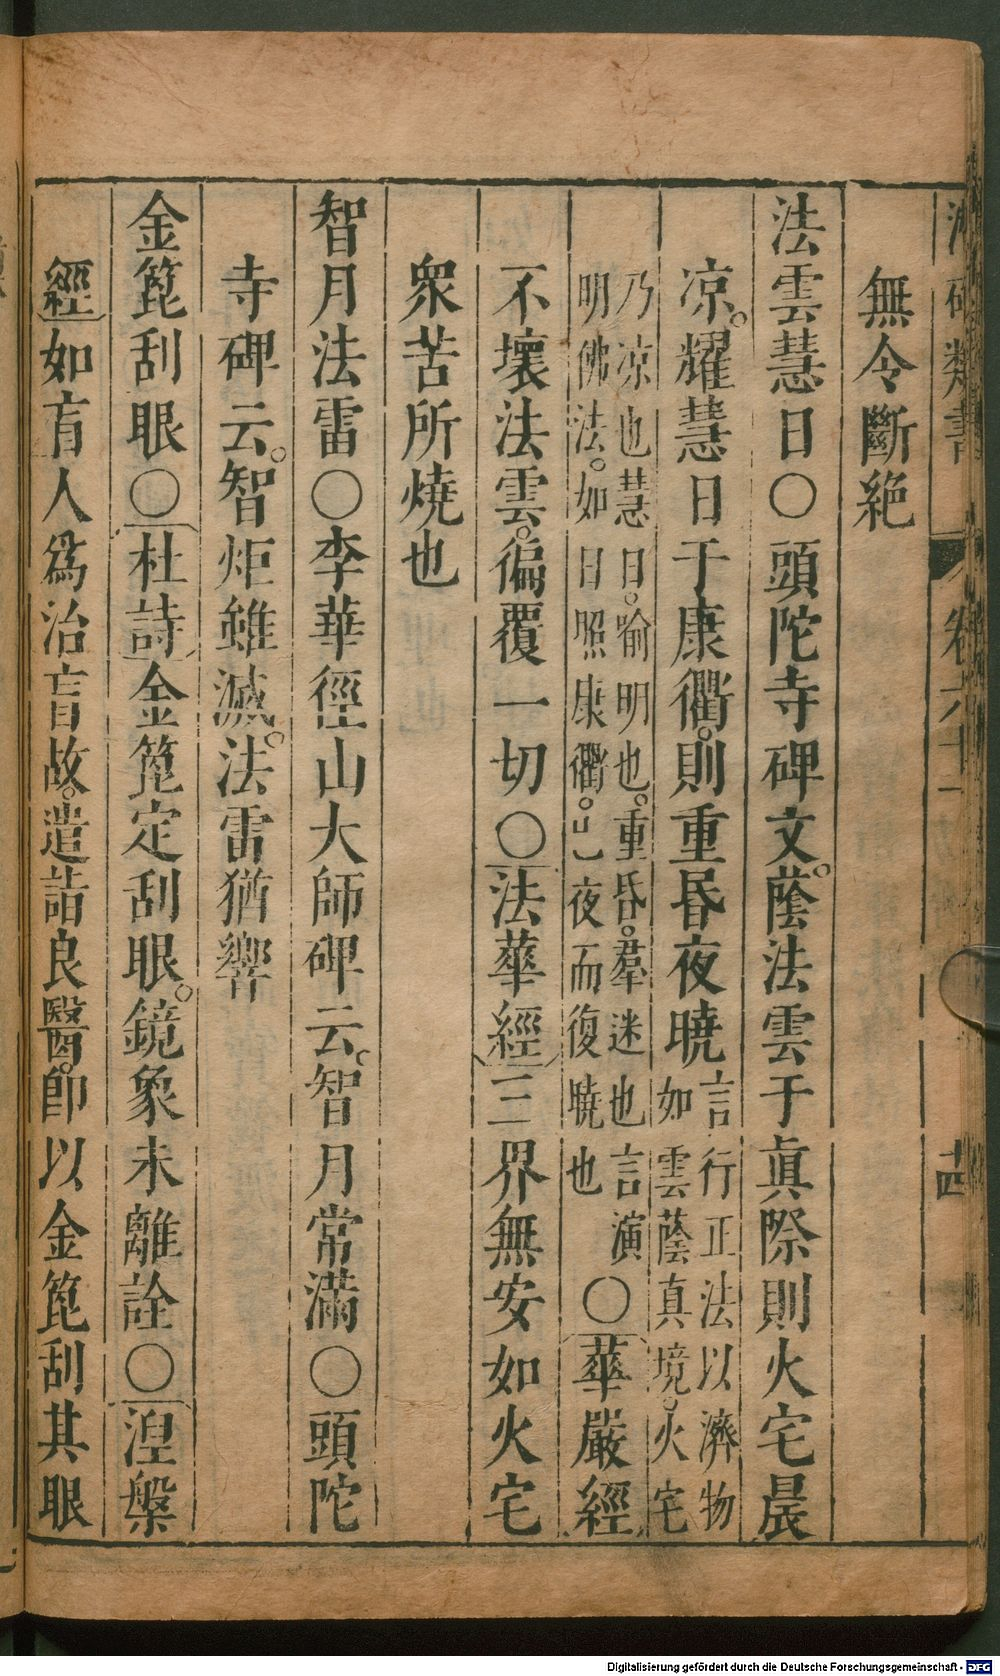 確類書 卷六十一 十四
無令斷絶
法雲慧日〇頭陀寺碑文。蔭法雲于眞際則火宅晨
凉。耀慧日于康衢。則重昬夜曉言行正法以濟物如雲蔭真境。火宅
乃凉也慧日。喻明也。重昏。羣迷也言演明佛法。如日照康衢。夜而復曉也〇華嚴經
不壞法雲。徧覆一切〇法華經三界無安如火宅
衆苦所燒也
智月法雷〇李華徑山大師碑云。智月常滿〇頭陀
寺碑云。智炬雖滅。法雷猶響
金篦刮眼〇杜詩金篦定刮眼。鏡象未離詮〇湼槃
經如盲人爲治盲故。造詣良醫。卽以金篦刮其眼
Digitalisierung gefördert durch die Deutsche Forschungsgemeinschaft - DFG